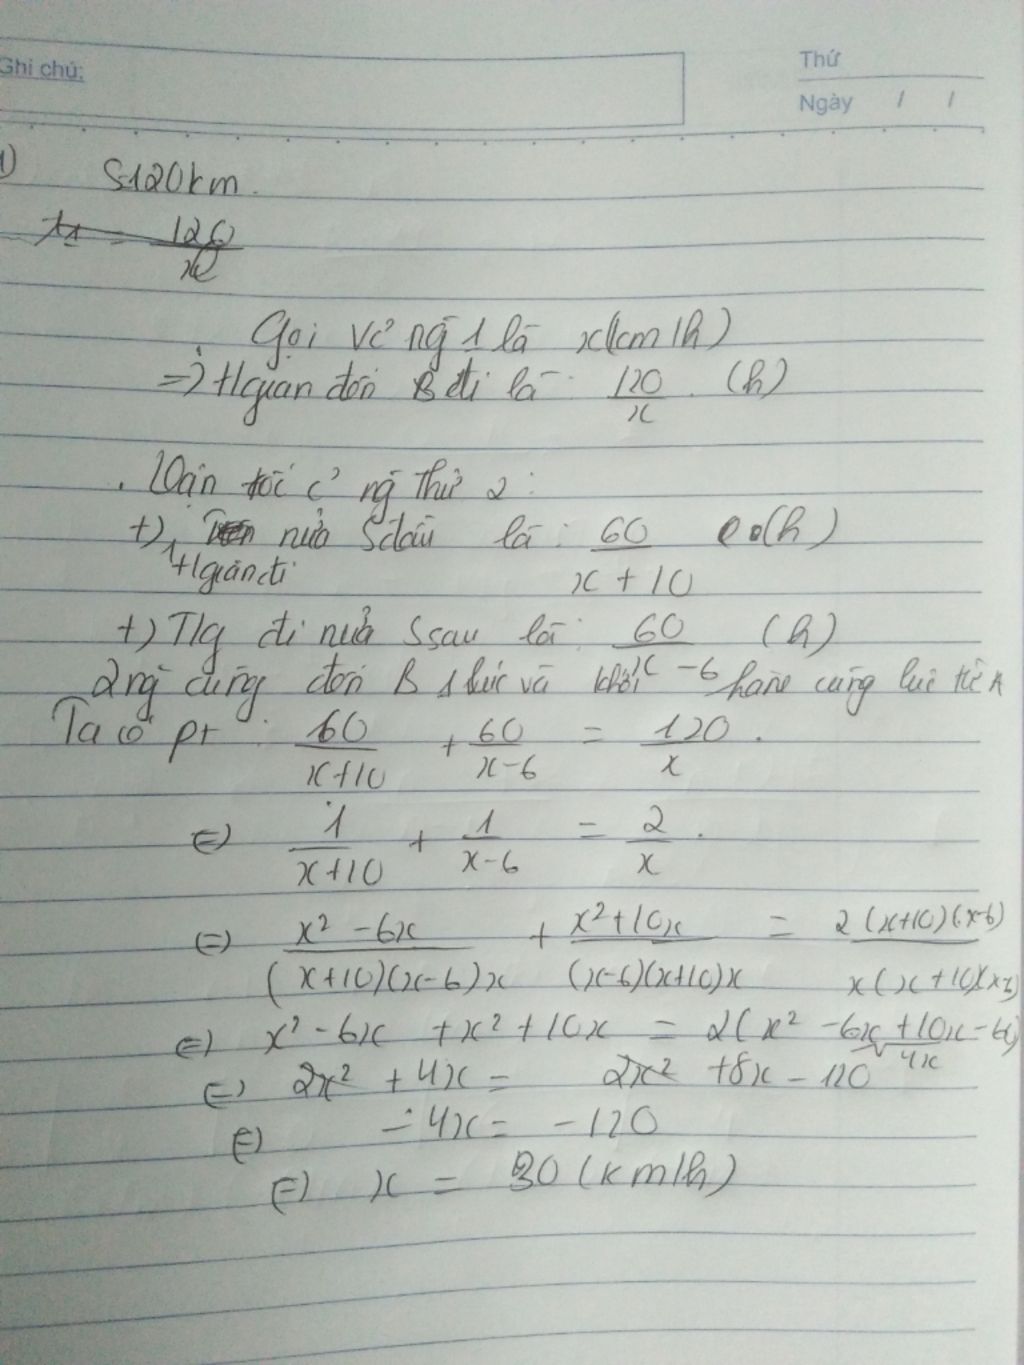 Ghi chú:
Thứ
Ngày / /
1) S120km.
t1 = 120/x
Gọi Vc' ng 1 là x(km/h)
=> t/gian đến B đi là: 120/x (h)
. Vận tốc c' ng thứ 2:
+) nửa Sđầu là: 60/(x+10) (h)
t/gian đi
+) T/g đi nửa Ssau là: 60/(x-6) (h)
2 ng cùng đến B 1 lúc và khởi hành cùng lúc từ A
Ta có pt: 60/(x+10) + 60/(x-6) = 120/x.
<=> 1/(x+10) + 1/(x-6) = 2/x.
<=> (x²-6x)/((x+10)(x-6)x) + (x²+10x)/((x-6)(x+10)x) = 2(x+10)(x-6)/x(x+10)(
<=> x²-6x+x²+10x = 2(x²-6x+10x-6
4x
<=> 2x²+4x = 2x²+8x-120
<=> -4x = -120
<=> x = 30 (km/h)